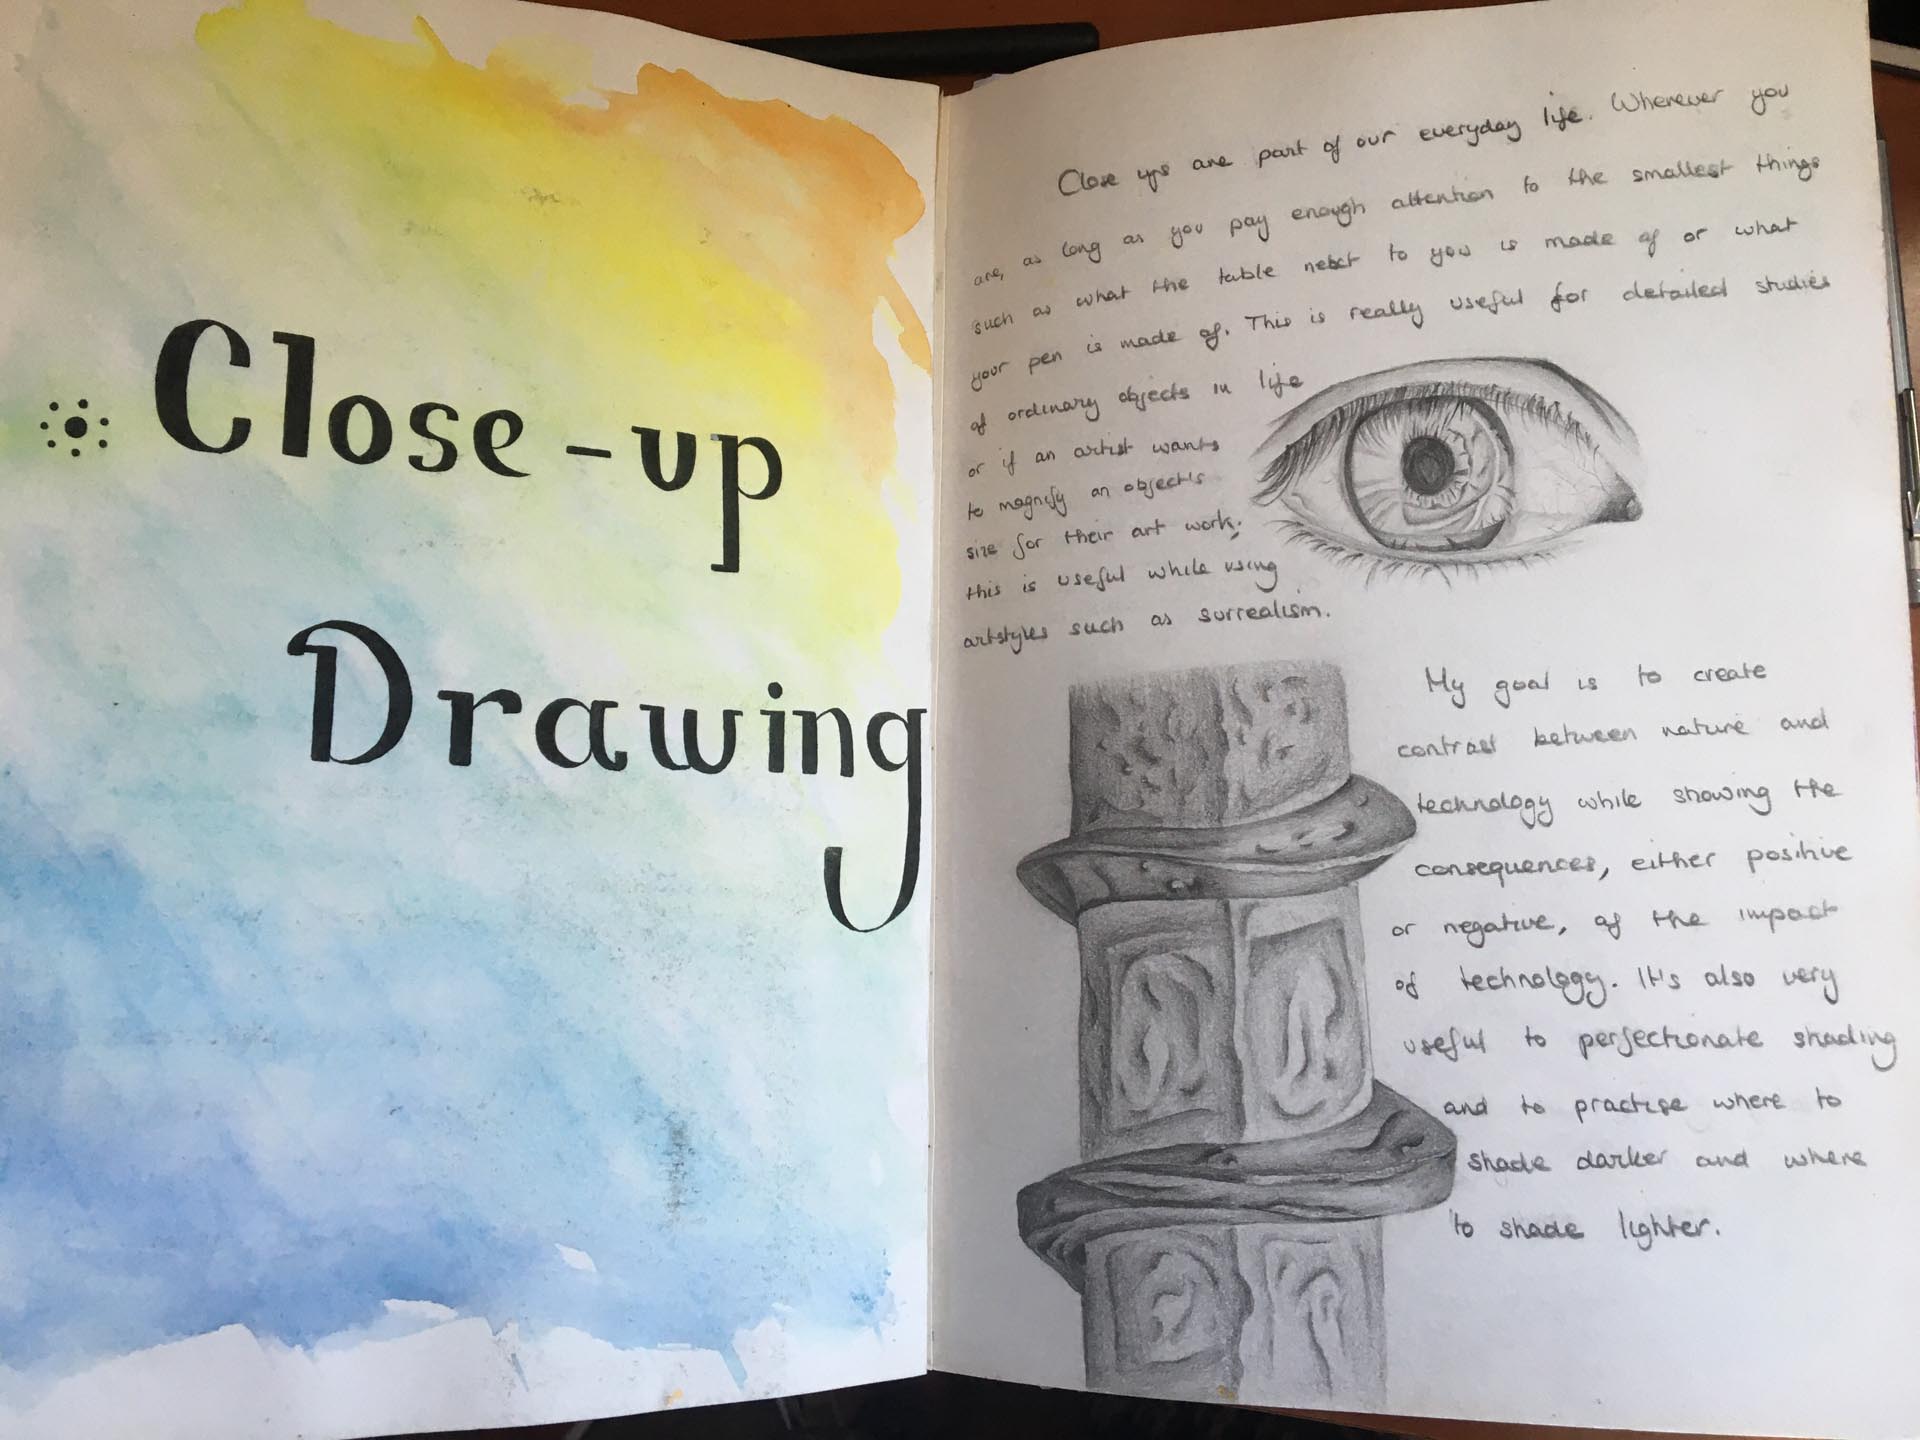 Close-up
Drawing
Close ups are part of our everyday life. Wherever you
are, as long as you pay enough attention to the smallest things
such as what the table next to you is made of or what
your pen is made of. This is really useful for detailed studies
of ordinary objects in life
or if an artist wants
to magnify an object's
size for their art work;
this is useful while using
artstyles such as surrealism.
My goal is to create
contrast between nature and
technology while showing the
consequences, either positive
or negative, of the impact
of technology. It's also very
useful to perfectionate shading
and to practise where to
shade darker and where
to shade lighter.